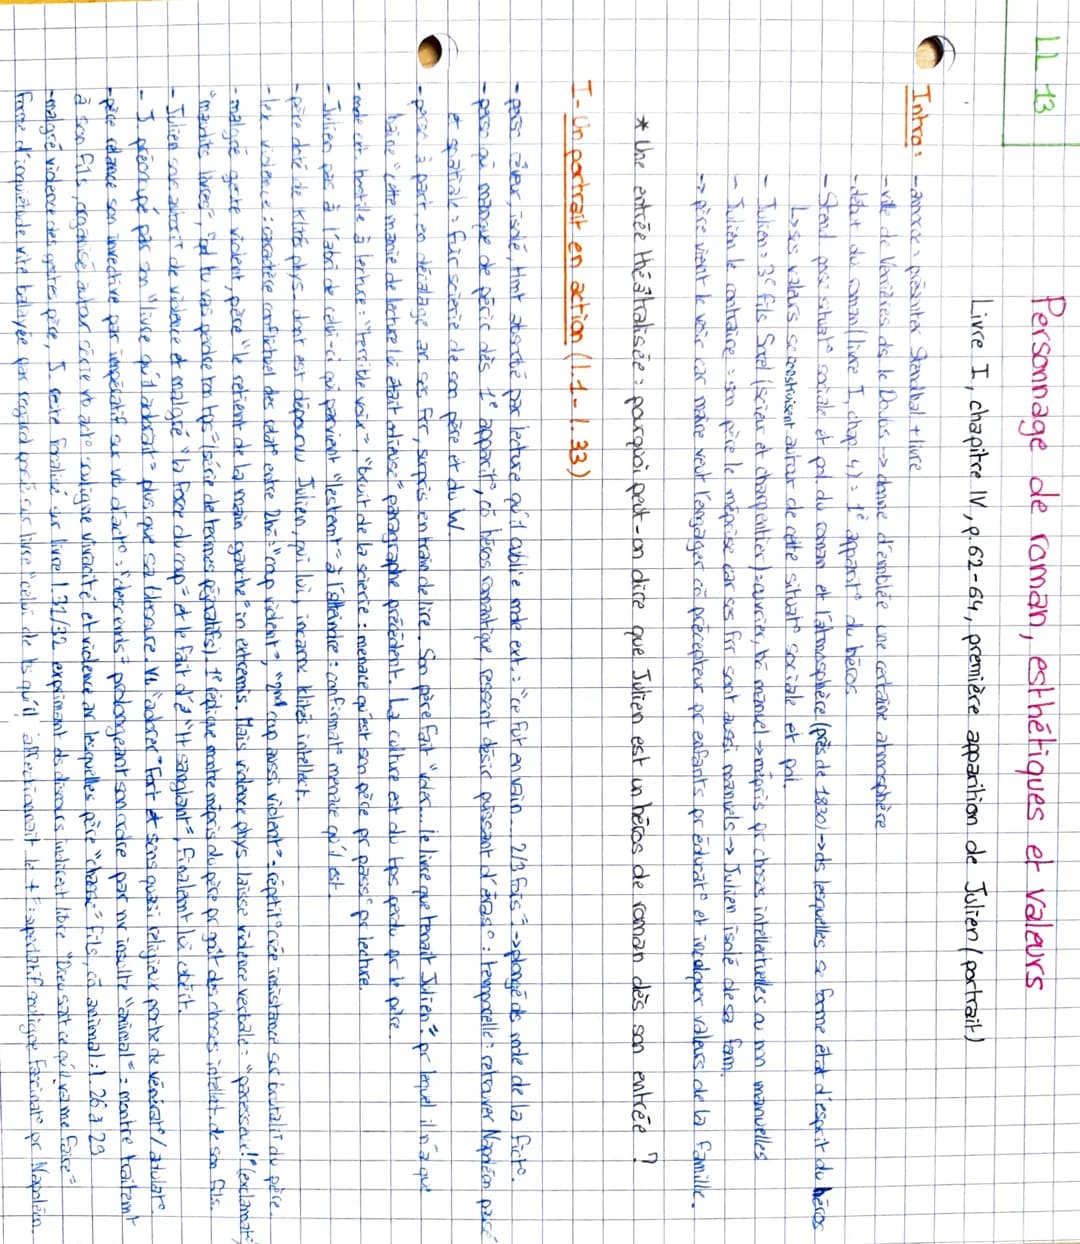 LL 13
Personnage de roman, esthétiques et valeurs
Livre I, chapitre IV, p.62-64, première apparition de Julien (portrait)
Intro: - amorce: présenter Stendhal + livre
- ville de Verrières ds le Doubs → donne d'emblée une certaine atmosphère
- début du roman (livre I, chap 4) = 1e appart° du héros
- Stend pose situat° sociale et pol du roman et l'atmosphère (près de 1830) → ds lesquelles se forme état d'esprit du héros
↳ ses valeurs se construisent autour de cette situat° sociale et pol.
- Julien = 3e fils Sorel (scieur et charpentier) = ouvrier, W manuel → mépris pr choses intellectuelles ou non manuelles
- Julien le contraire = son père le méprise car ses frr sont aussi manuels → Julien isolé de sa fam.
→ père vient le voir car maire veut l'engager cô précepteur pr enfants pr éducat° et inculquer valeurs de la famille.
* Une entrée théâtralisée = pourquoi peut-on dire que Julien est un héros de roman dès son entrée ?
I - Un portrait en action (l.1 - l.33)
- pers rêveur, isolé, tlmt absorbé par lecture qu'il oublie mnde ext = "ce fut en vain ... 2/3 fois" → plongé ds mnde de la fict°.
- pers qui manque de péric dès 1e apparit°, cô héros romantique, ressent désir puissant d'évas° : temporelle = retrouver Napoléon passé
et spatiale = fuir scierie de son père et du W.
- perso à part, en décalage ac ses frr, surpris en train de lire. Son père fait "voler... le livre que tenait Julien" pr lequel il n'a que
haine "cette manie de lecture lui était odieuse" paragraphe précédent. La culture est du tps perdu pr le père.
- mnde est hostile à lecture = "terrible voix", "bruit de la scierie = menace qu'est son père pr pass° pr lecture.
- Julien pas à l'abri de celui-ci qui parvient "lestemt" à l'atteindre : confirmat° menace qu'il est
- père doté de klités phys. dont est dépourvu Julien, qui lui, incarne klités intellect.
- lex violence : caractère conflictuel des relat° entre 2 = "coup violent", "coup aussi violent" - répétit° crée insistance sur brutalit du père.
- malgré geste violent, père "le retient de la main gauche" in extremis. Mais violence phys laisse violence verbale = "paresseux!" (exclamat°)
"maudits livres", "tu vas perdre ton tps" (série de termes péjoratifs). 1e réplique montre mépris du père pr goût des choses intellect. de son fils.
- Julien malgré "la force du coup" et le fait d'ê "tt sanglant", finalemt lui obéit.
- J préoccupé par son "livre qu'il adorait" plus que sa blessure. Vb "adorer" fort et sens quasi religieux porte de vénérat° / adulat°
- père relance son invective par impératif sur vb d'act° : "descends" prolongeant son ordre par nv insulte "animal" = montre traitemt
à son fils, organisé autour série vb act° souligne vivacité et violence ac lesquelles père "chasse" fils, cô animal : l.26 à 29
- malgré violence des gestes père, J reste focalisé sur livre l.31/32 exprimant ds discours indirect libre "Dieu sait ce qu'il va me faire"
forme d'inquiétude vite balayée par regard posé sur livre "celui de ts qu'il affectionnait le +" : superlatif souligne fascinat° pr Napoléon.